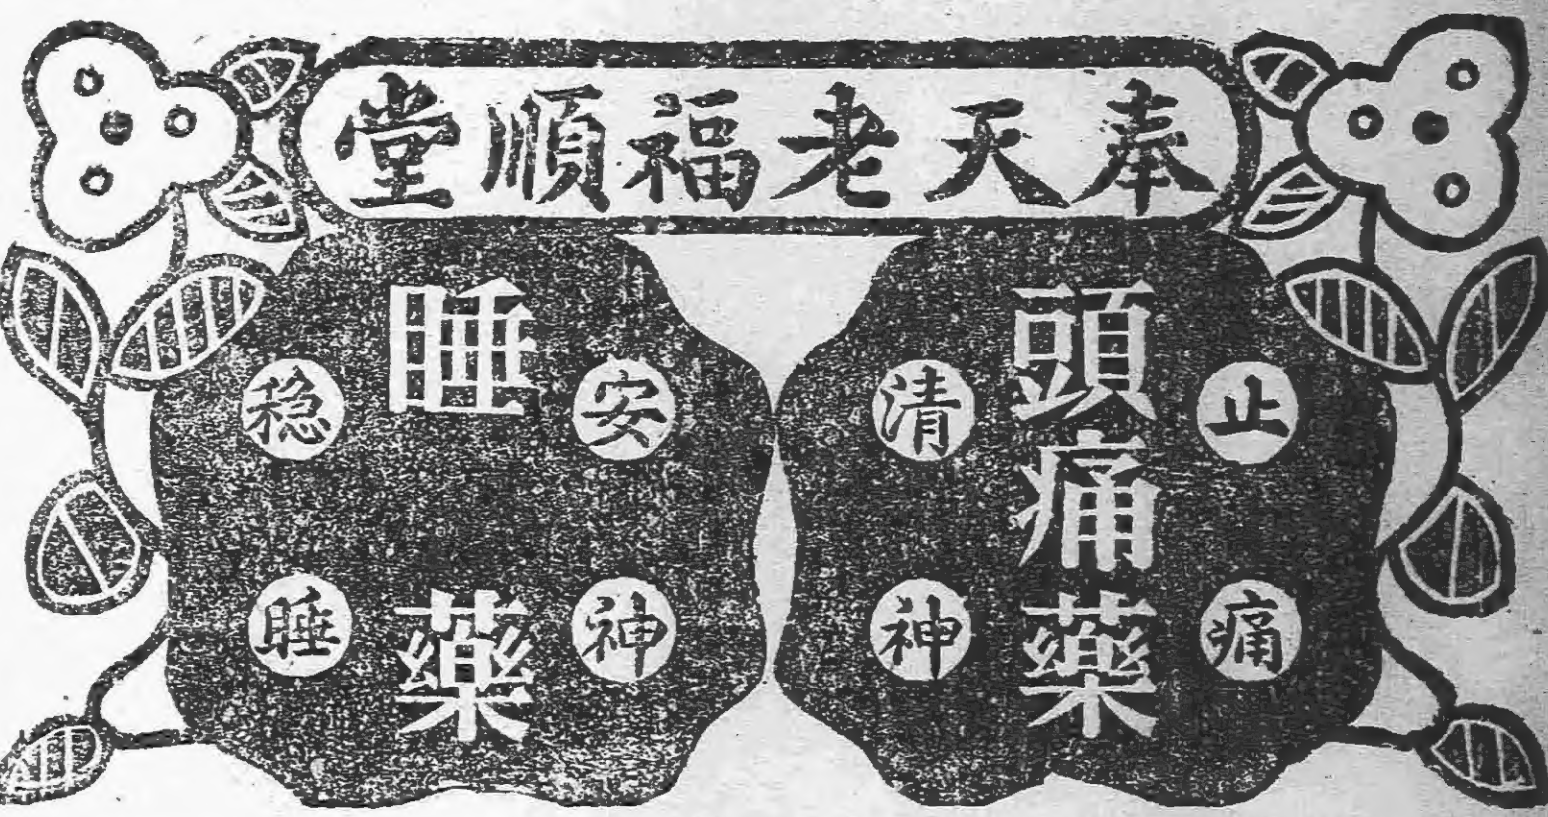 奉天老福順堂
頭痛藥
止痛
清神
睡藥
安神
稳睡